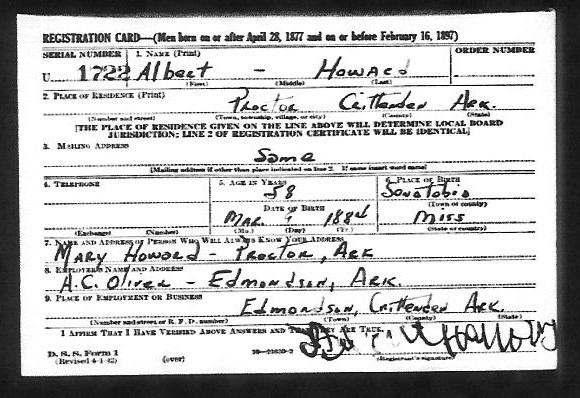 REGISTRATION CARD—(Men born on or after April 28, 1877 and on or before February 16, 1897)
SERIAL NUMBER 1. NAME (Print) ORDER NUMBER
U 1722 Albert - Howard
(First) (Middle) (Last)
2. PLACE OF RESIDENCE (Print)
Proctor Crittenden Ark.
(Number and street) (Town, township, village, or city) (County) (State)
[THE PLACE OF RESIDENCE GIVEN ON THE LINE ABOVE WILL DETERMINE LOCAL BOARD
JURISDICTION; LINE 2 OF REGISTRATION CERTIFICATE WILL BE IDENTICAL]
3. MAILING ADDRESS
Same
[Mailing address if other than place indicated on line 2. If same insert word same]
4. TELEPHONE 5. AGE IN YEARS 6. PLACE OF BIRTH
58 Senatobia
DATE OF BIRTH (Town or county)
Mar. 1884 Miss
(Exchange) (Number) (Mo.) (Day) (Yr.) (State or country)
7. NAME AND ADDRESS OF PERSON WHO WILL ALWAYS KNOW YOUR ADDRESS
Mary Howard - Proctor, Ark
8. EMPLOYER'S NAME AND ADDRESS
A.C. Oliver - Edmondson, Ark.
9. PLACE OF EMPLOYMENT OR BUSINESS
Edmondson, Crittenden Ark.
(Number and street or R. F. D. number) (Town) (County) (State)
I AFFIRM THAT I HAVE VERIFIED ABOVE ANSWERS AND THAT THEY ARE TRUE.
D. S. S. Form 1
(Revised 4-1-42) (over) 16—21630-2 (Registrant's signature)